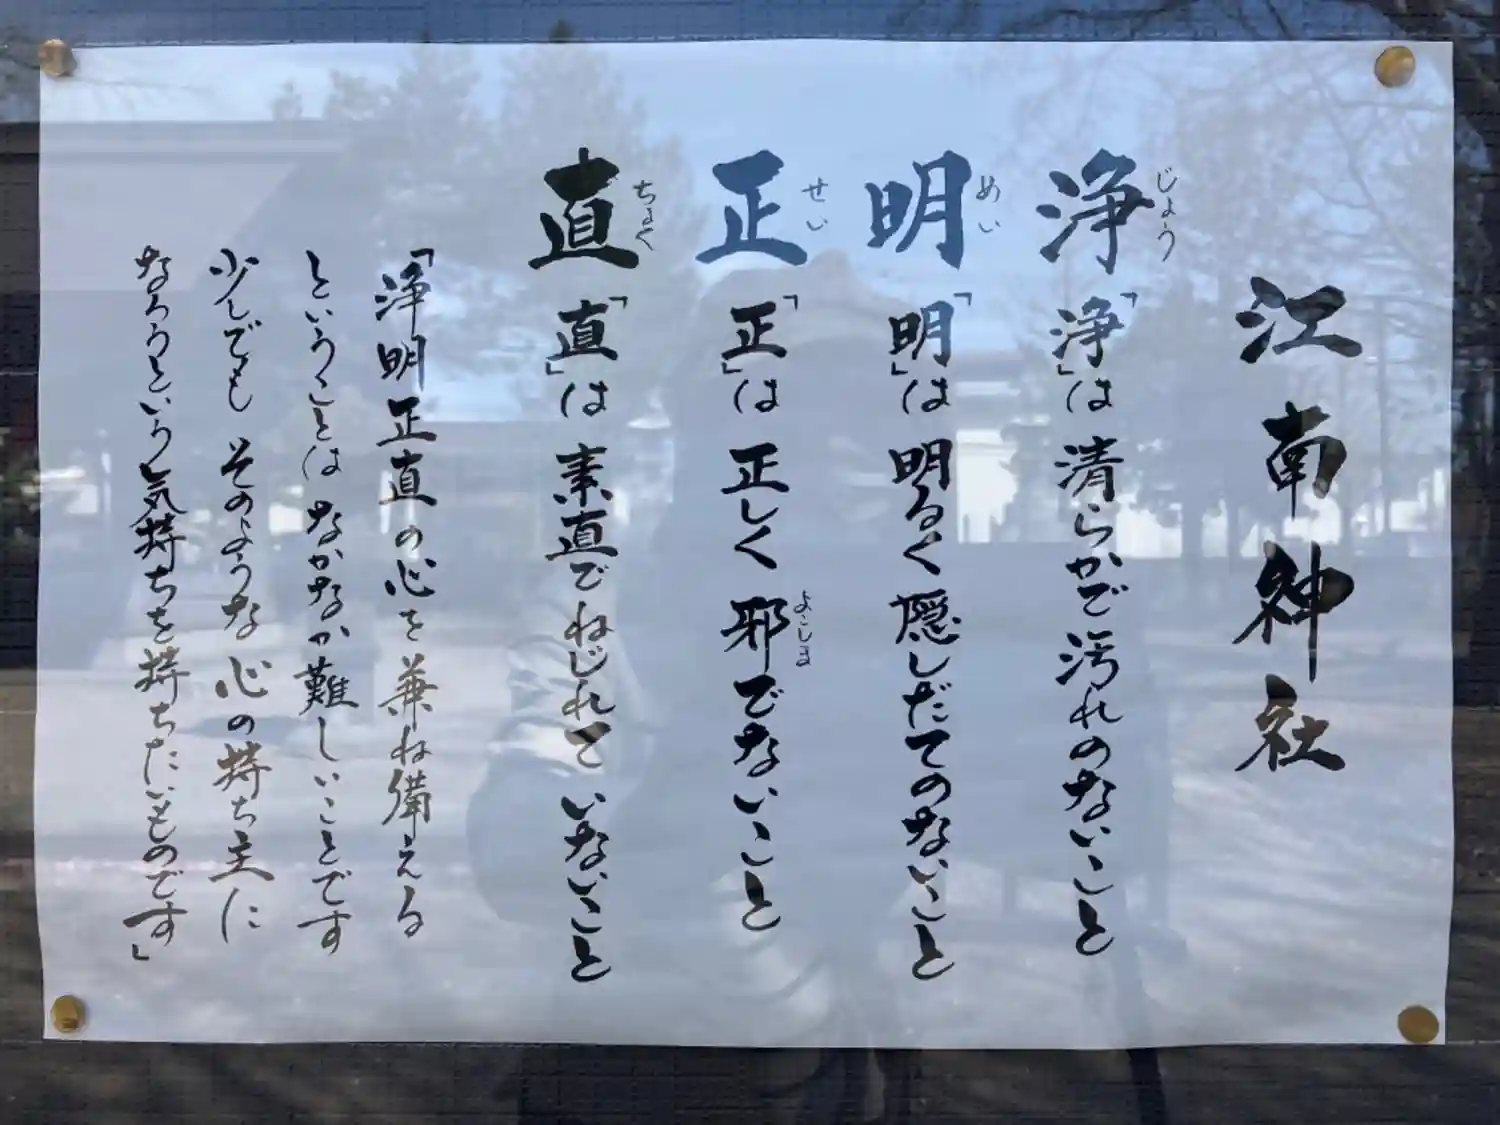 江南神社
浄 じょう 「浄」は清らかで汚れのないこと
明 めい 「明」は明るく隠しだてのないこと
正 せい 「正」は正しく邪でないこと よこしま
直 ちょく 「直」は素直でねじれていないこと
「浄明正直の心を兼ね備える
ということはなかなか難しいことです
少しでもそのような心の持ち主に
なろうという気持ちを持ちたいものです」